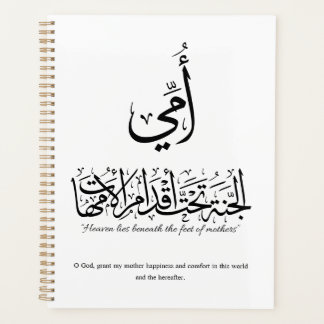 أُمِّي
الجَنَّةُ تَحْتَ أَقْدَامِ الأُمَّهَات
"Heaven lies beneath the feet of mothers"
O God, grant my mother happiness and comfort in this world
and the hereafter.